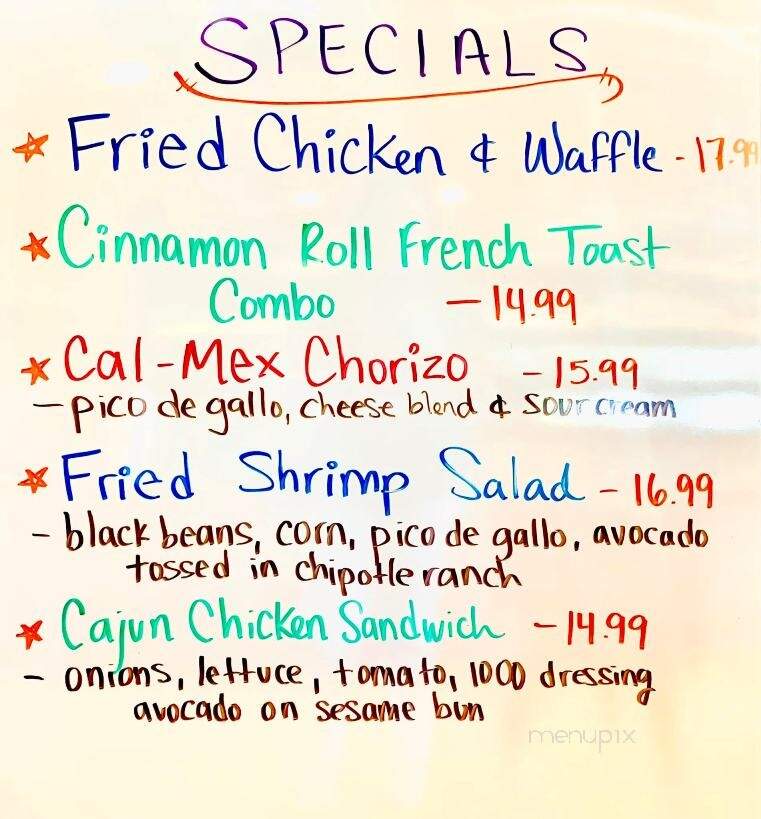 SPECIALS
Fried Chicken & Waffle - 17.99
Cinnamon Roll French Toast
Combo - 14.99
Cal-Mex Chorizo - 15.99
- pico de gallo, cheese blend & sour cream
Fried Shrimp Salad - 16.99
- black beans, corn, pico de gallo, avocado
tossed in chipotle ranch
Cajun Chicken Sandwich - 14.99
- onions, lettuce, tomato, 1000 dressing
avocado on sesame bun
menupix